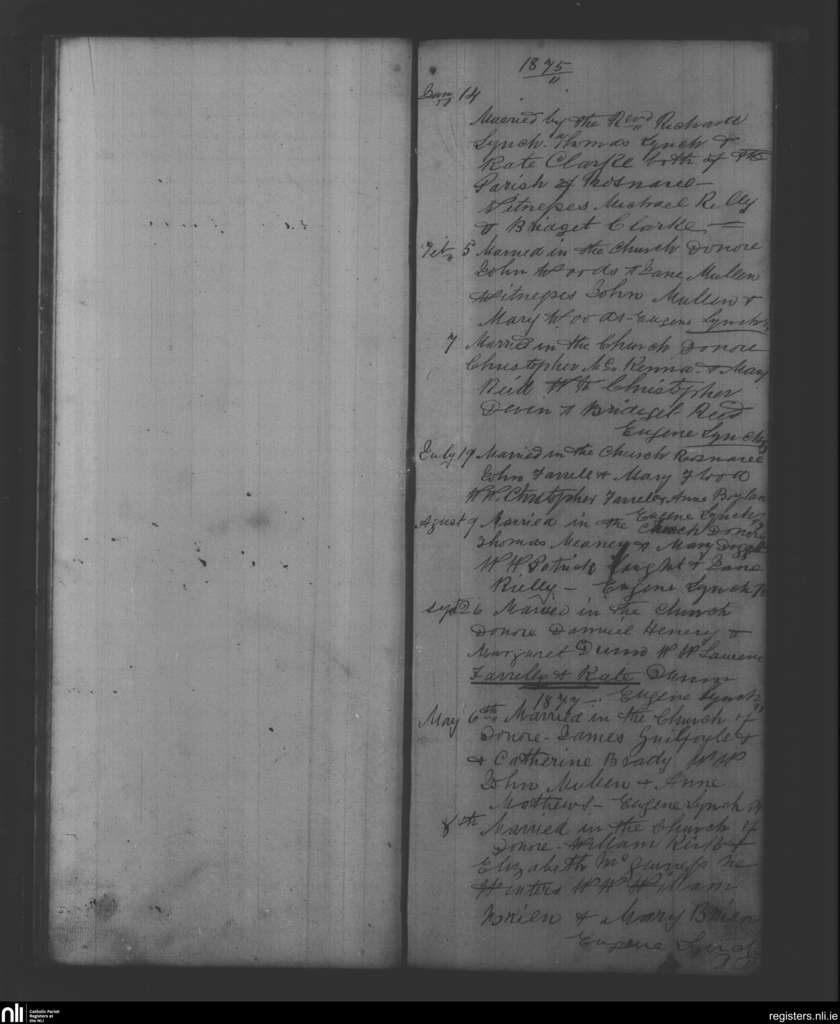 1875
Jan 14
Married by the Revd Richard
Lynch. Thomas Lynch &
Kate Clarke both of the
Parish of Rosnaree
Witnesses Michael Relly
& Bridget Clarke
Feb 5 Married in the Church Donore
John Woods & Jane Mullen
Witnesses John Mullen &
Mary Woods Eugene Lynch
7 Married in the Church Donore
Christopher Mc Kenna & Mary
Christopher
Devin & Bridget
Eugene Lynch
July 19 Married in the Church Rosnaree
John Farrell & Mary Flood
WW. Christopher Farrell & Anne Boylan
Eugene Lynch
August 9 Married in the Church Donore
Thomas Meaney & Mary
WW Patrick & Jane
Rielly - Eugene Lynch
Sept 26 Married in the Church
Donore Daniel Henery &
Margaret Dunn WW Laurence
Farreley & Kate Dunn
1877 Eugene Lynch
May 6th Married in the Church of
Donore - James Guilfoyle &
& Catherine Brady WW
John Mullen & Anne
Mathews - Eugene Lynch
8th Married in the Church of
Donore - William Kirk &
Elizabeth Mc Guiness
WW William
Brien & Mary Brien
Eugene Lynch
nli
Catholic Parish
Registers at
the NLI
registers.nli.ie